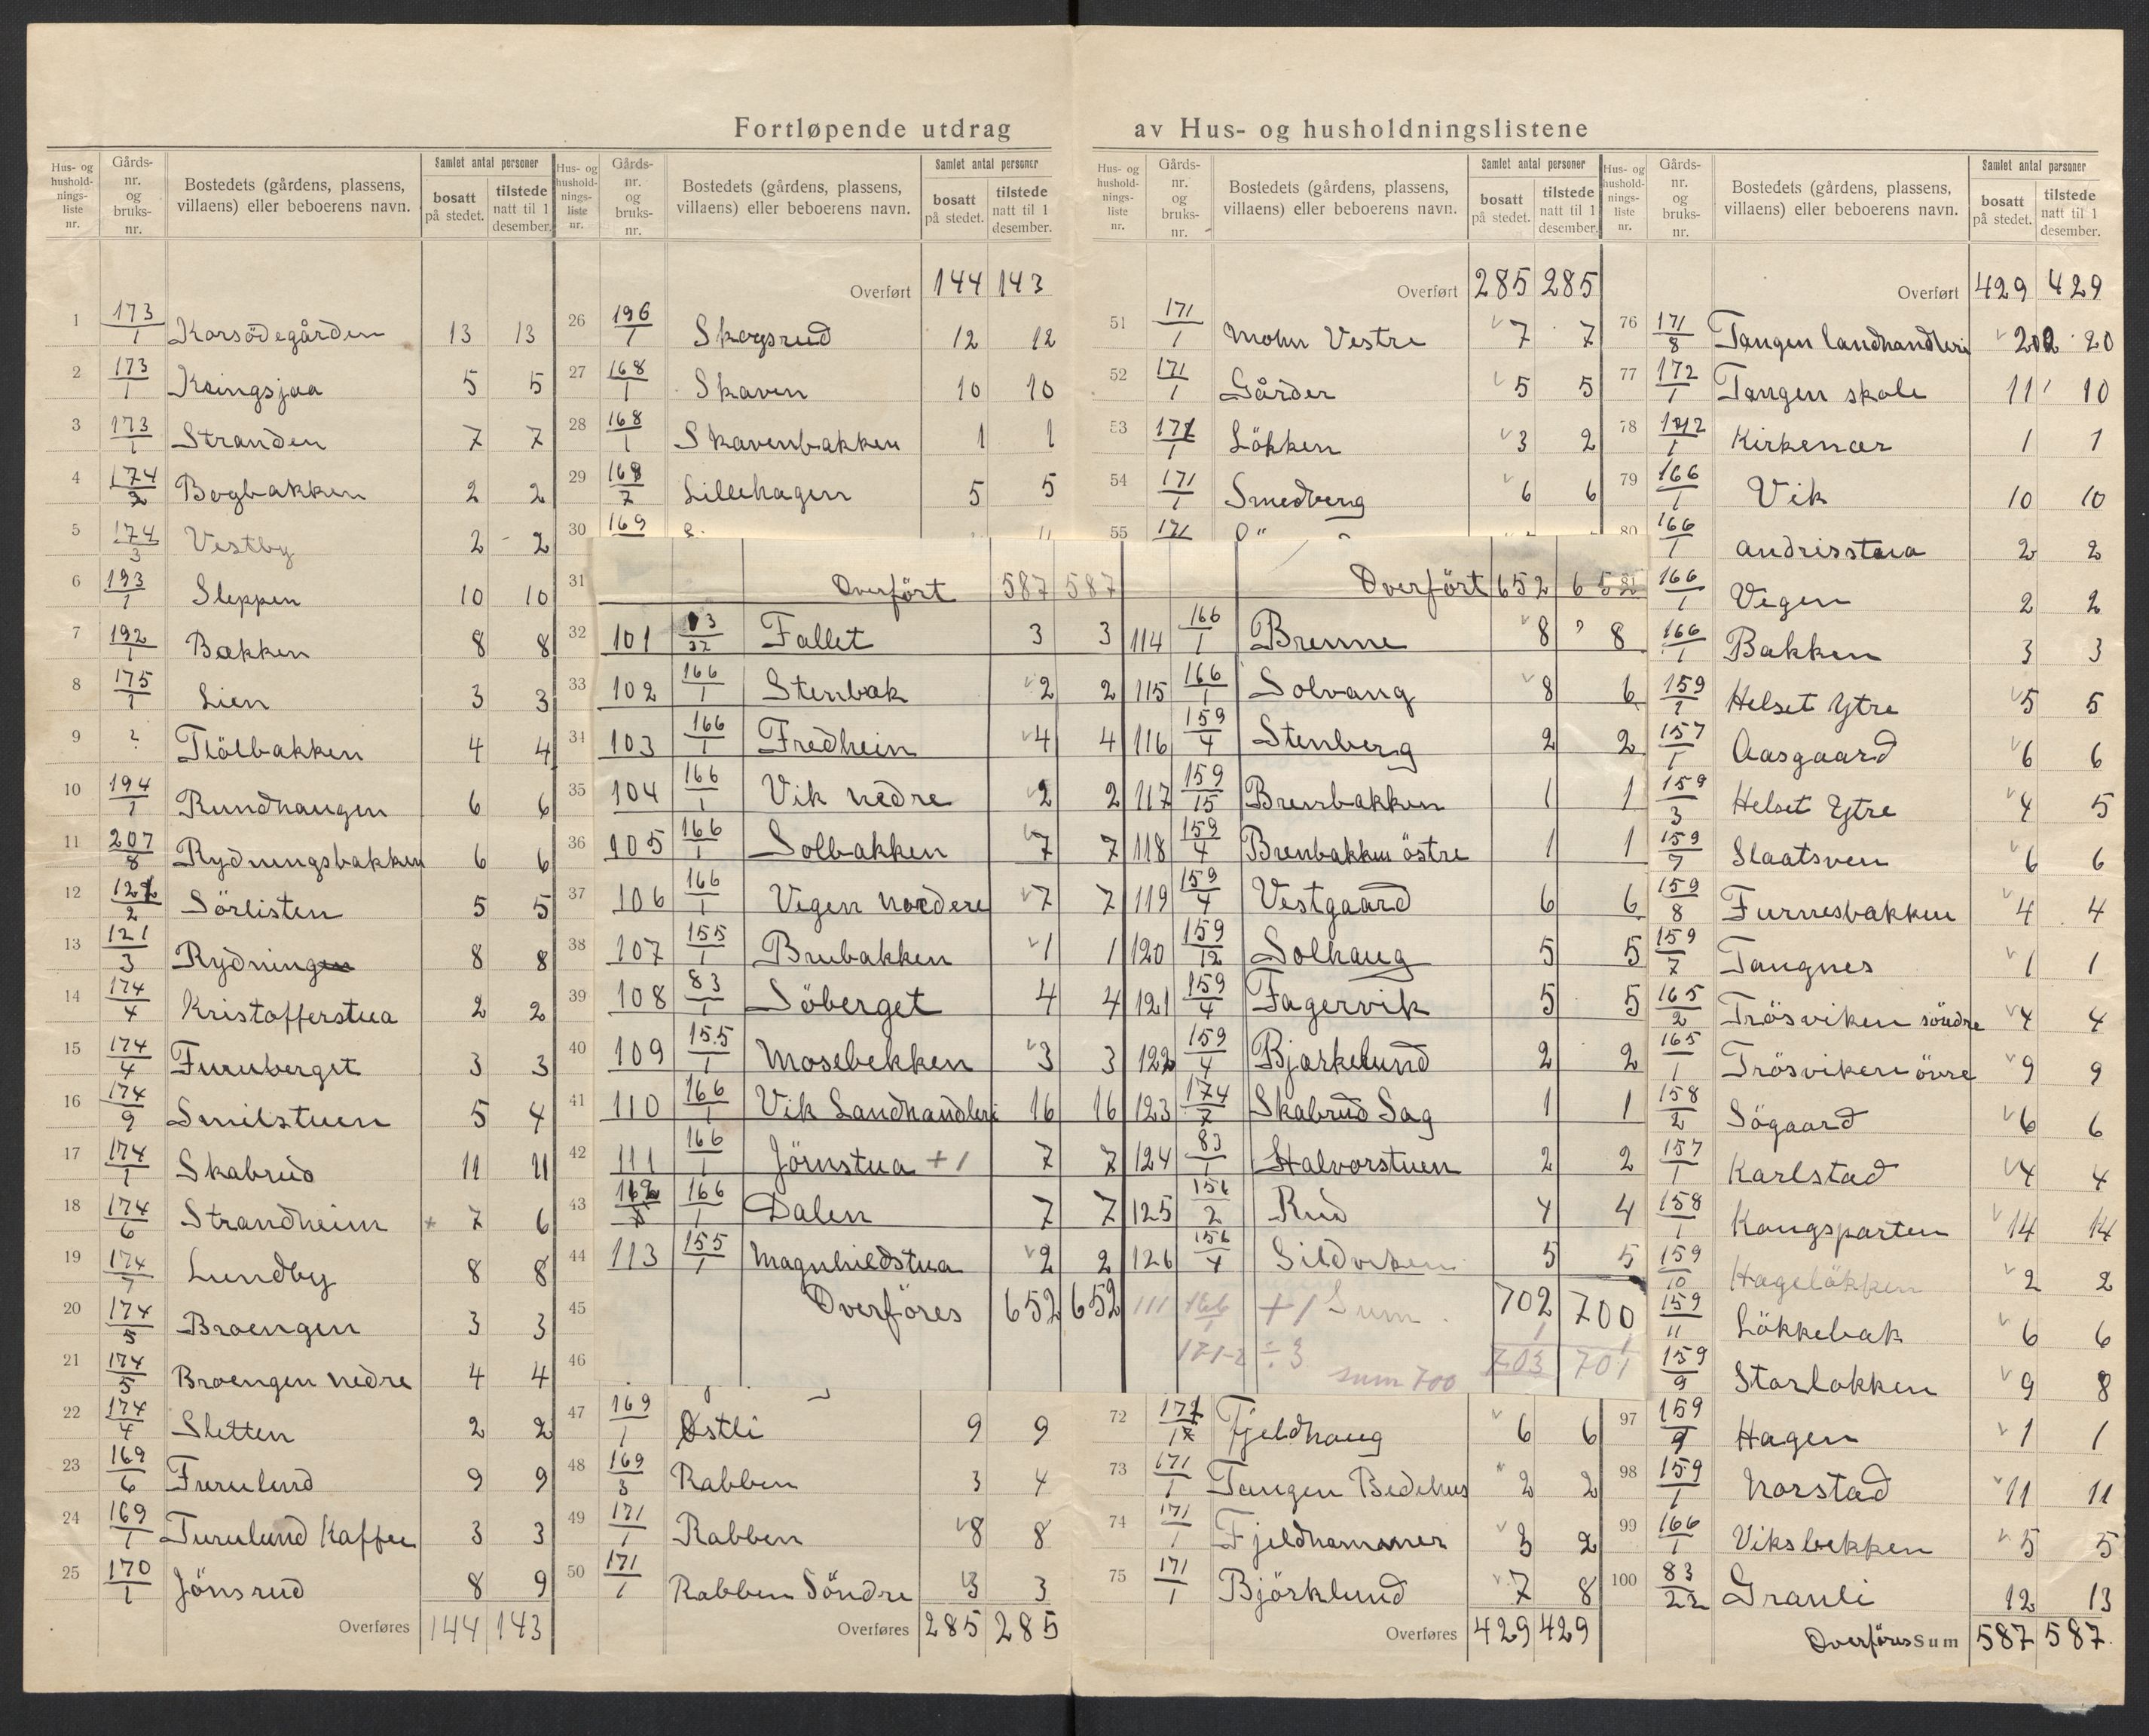 Fortløpende utdrag av Hus- og husholdningslistene
Hus- og husholdningsliste nr. Gårds- nr. og bruks- nr. Bostedets (gårdens, plassens, villaens) eller beboerens navn. Samlet antal personer bosatt på stedet. tilstede natt til 1 desember.
1 173/1 Korsödegården 13 13
2 173/1 Kringsjaa 5 5
3 173/1 Stranden 7 7
4 174/2 Bogbakken 2 2
5 174/3 Vestby 2 2
6 193/1 Sleppen 10 10
7 192/1 Bakken 8 8
8 175/1 Lien 3 3
9 ? Tlölbakken 4 4
10 194/1 Rundhaugen 6 6
11 207/8 Rydningsbakken 6 6
12 121/2 Sörlisten 5 5
13 121/3 Rydningen 8 8
14 174/4 Kristofferstua 2 2
15 174/4 Furuberget 3 3
16 174/9 Smilstuen 5 4
17 174/1 Skabrud 11 11
18 174/6 Strandheim + 7 6
19 174/7 Lundby 8 8
20 174/5 Broengen 3 3
21 174/5 Broengen nedre 4 4
22 174/4 Sletten 2 2
23 169/6 Furulund 9 9
24 169/1 Furulund Kaffee 3 3
25 170/1 Jönsrud 8 9
Overføres 144 143
Hus- og husholdningsliste nr. Gårds- nr. og bruks- nr. Bostedets (gårdens, plassens, villaens) eller beboerens navn. Samlet antal personer bosatt på stedet. tilstede natt til 1 desember.
Overført 144 143
26 196/1 Skogsrud 12 12
27 168/1 Skaven 10 10
28 168/1 Skavenbakken 1 1
29 168/7 Lillehagen 5 5
30 169
31
32
33
34
35
36
37
38
39
40
41
42
43
44
45
46
Overført 587 587
101 83/32 Fallet 3 3
102 166/1 Stenbak 2 2
103 166/1 Fredhein 4 4
104 166/1 Vik nedre 2 2
105 166/1 Solbakken 7 7
106 166/1 Vegen nordere 7 7
107 155/1 Brubakken 1 1
108 83/1 Söberget 4 4
109 155/1 Mosebekken 3 3
110 166/1 Vik Landhandleri 16 16
111 166/1 Jörnstua +1 7 7
112 166/1 Dalen 7 7
113 155/1 Magnhildstua 2 2
Overföres 652 652
Overfört 652 652
114 166/1 Brenne 8 8
115 166/1 Solvang 8 6
116 159/4 Stenberg 2 2
117 159/15 Brenbakken 1 1
118 159/4 Brenbakken östre 1 1
119 159/4 Vestgaard 6 6
120 159/12 Solhaug 5 5
121 159/4 Fagervik 5 5
122 159/4 Bjørkelund 2 2
123 174/7 Skabrud Sag 1 1
124 83/1 Halvorstuen 2 2
125 156/2 Rud 4 4
126 156/4 Sildviken 5 5
111 166/1 +1 Sum 702 700
1 1
171-2 ÷3 sum 700 703 701
47 169/1 Østli 9 9
48 169/3 Rabben 3 4
49 171/1 Rabben 8 8
50 171/1 Rabben Söndre 3 3
Overføres 285 285
Hus- og husholdningsliste nr. Gårds- nr. og bruks- nr. Bostedets (gårdens, plassens, villaens) eller beboerens navn. Samlet antal personer bosatt på stedet. tilstede natt til 1 desember.
Overført 285 285
51 171/1 Mohn Vestre 7 7
52 171/1 Gårder 5 5
53 171/1 Lökken 3 2
54 171/1 Smedberg 6 6
55 171
72 171/12 Fjeldhaug 6 6
73 171/1 Tangen Bedehus 2 2
74 171/1 Fjeldhammer 3 2
75 171/1 Björklund 7 8
Overføres 429 429
Hus- og husholdningsliste nr. Gårds- nr. og bruks- nr. Bostedets (gårdens, plassens, villaens) eller beboerens navn. Samlet antal personer bosatt på stedet. tilstede natt til 1 desember.
Overført 429 429
76 171/8 Tangen landhandleri 20 20
77 172/1 Tangen skole 11 10
78 172/1 Kirkenær 1 1
79 166/1 Vik 10 10
80 166/1 Andrisstua 2 2
81 166/1 Vegen 2 2
166/1 Bakken 3 3
159/1 Helset Ytre 5 5
157/1 Aasgaard 6 6
159/3 Helset Ytre 4 5
159/7 Slaatsven 6 6
159/8 Furnesbakken 4 4
159/7 Tangnes 1 1
165/2 Trösviken söndre 4 4
165/1 Trösviken övre 9 9
158/2 Sögaard 6 6
157/1 Karlstad 4 4
158/1 Kongsparten 14 14
159/10 Hagelökken 2 2
159/11 Lökkebak 6 6
159/9 Storlokken 9 8
97 159/9 Hagen 1 1
98 159/1 Norstad 11 11
99 166/1 Viksbekken 5 5
100 83/22 Granli 12 13
Overføres Sum 587 587